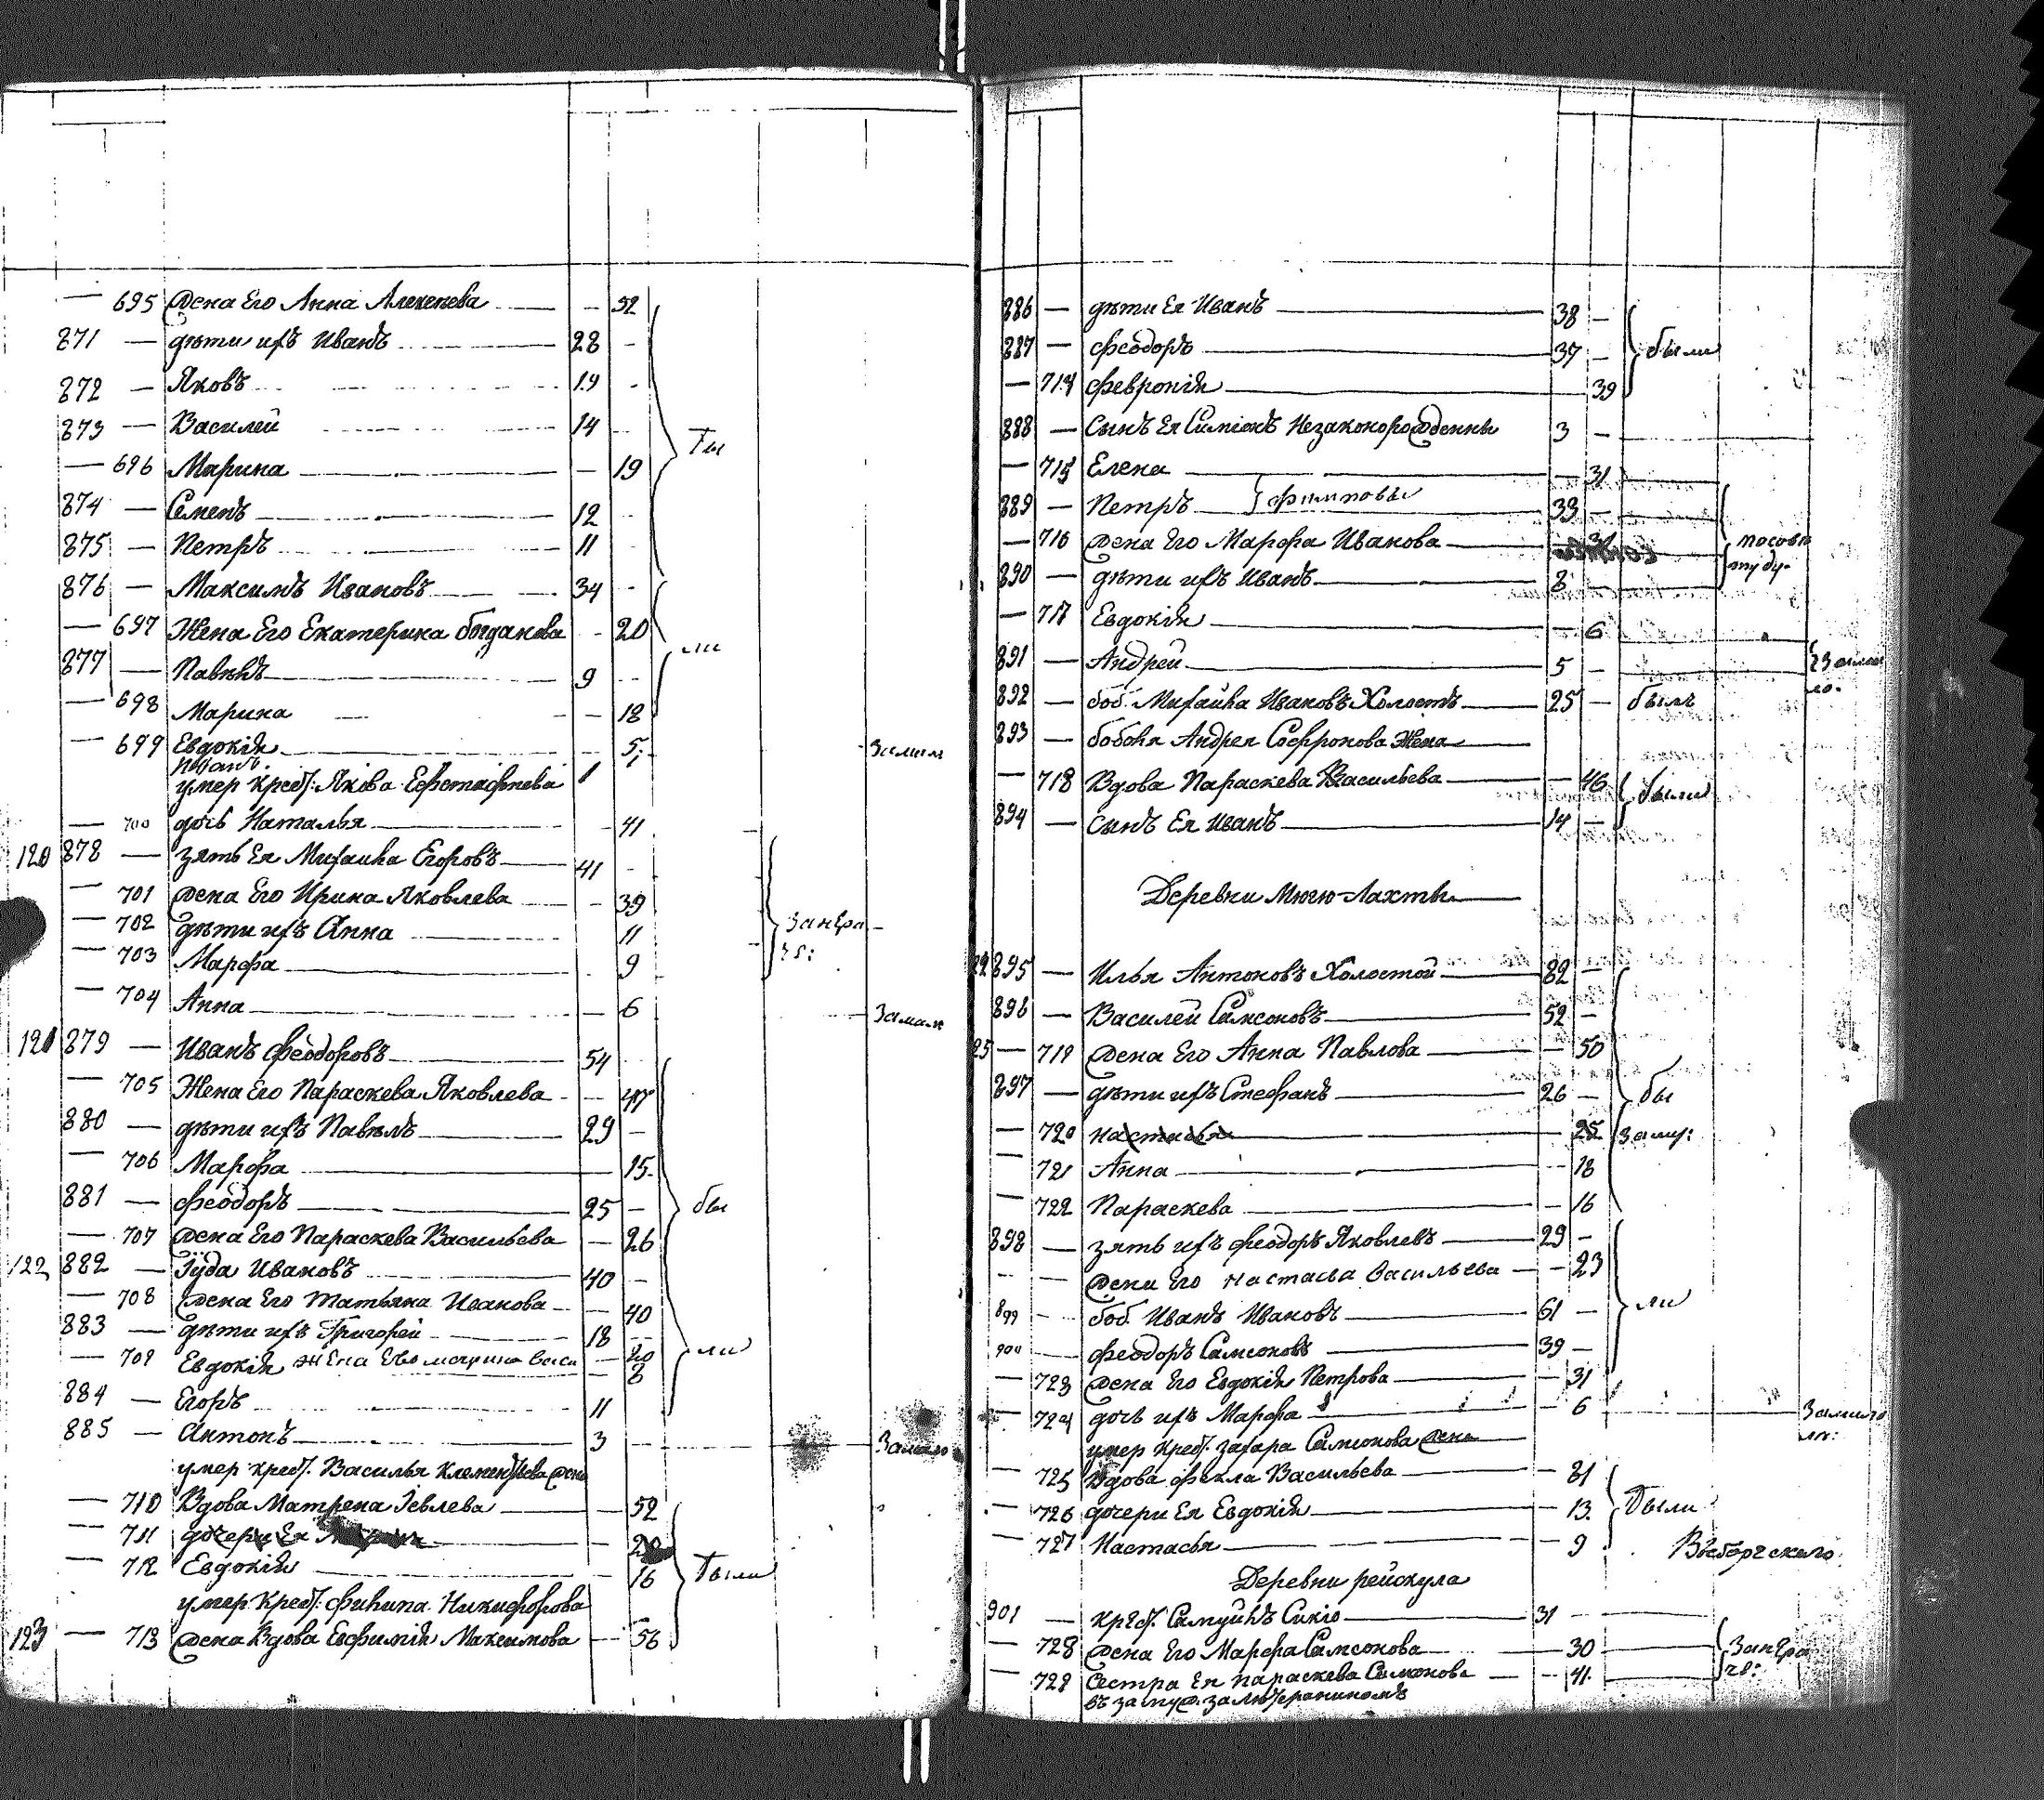 — 695 жена Его Анна Алексеева — — 52
871 — дѣти ихъ Иванъ — 28 -
872 — Яковъ — 19 -
873 — Василей — 14 -
— 696 Марина — — 19
874 — Семенъ — 12 -
875 — Петръ — 11
876 — Максимъ Ивановъ — 34 -
— 697 Жена Его Екатерина богданова - 20
877 — Павелъ — 9 -
— 698 Марина — — 18
— 699 Евдокія — - 5
умер крест: Якова Ефстафиева
— 700 дочь Наталья — - 41
120 878 — зять Ея Михаила Егоровъ — 41 -
— 701 жена Его Ирина Яковлева — - 39
— 702 дѣти ихъ Анна — 11
— 703 Марфа — 9
— 704 Анна — — 6
121 879 — Иванъ феодоровъ — 54
— 705 Жена Его Параскева Яковлева - — 47
880 — дѣти ихъ Павелъ — 29 —
— 706 Марфа — 15
881 — феодоръ — 25 —
— 707 жена Его Параскева Васильева — 26
122 882 — Іуда Ивановъ — 40 —
— 708 жена Его Татьяна Иванова — — 40
883 — дѣти ихъ Григорей — 18 —
— 709 Евдокія жена Ево марина васи — 20
8
884 — Егоръ — 11
885 — Антонъ — 3
умер крест. Василья Клементьева жена
— 710 Вдова Матрена Іевлева — — 52
— 711 дочери Ея — 20
— 712 Евдокія — 16
умер крест: филипа Никифорова
123 — 713 жена Вдова Евфимія Максимова — 56
бы
ли
бы
ли
были
886 — дѣти Ея Иванъ — 38 -
887 — феодоръ — 37 - были
— 714 февронія — 39
888 — Сынъ Ея Симіонъ Незаконорожденны 3 —
— 715 Елена — 31
889 — Петръ — филиповы 33 —
— 716 жена Его Марфа Иванова —
890 — дѣти ихъ Иванъ — 8 -
— 717 Евдокія — 6
891 — Андрей — 5 -
892 — боб. Михаила Ивановъ Холостъ — 25 — былъ
893 — бобыля Андрея Софронова Жена —
— 718 Вдова Параскева Васильева — — 46
894 — Сынъ Ея Иванъ — 14 — были
Деревни Мюгю-Лахты —
895 — Илья Антоновъ Холостой — 82 —
896 — Василей Самсоновъ — 52 —
— 719 жена Его Анна Павлова — — 50
897 — дѣти ихъ Стефанъ — 26 — бы
— 720 настасья — 25 замуж:
— 721 Анна — 18
— 722 Параскева — 16
898 — зять ихъ феодоръ Яковлевъ — 29 -
— — жена Его настасья васильева — - 23
899 — боб. Иванъ Ивановъ — 61 — ли
900 — феодоръ Самсоновъ — 39 —
— 723 жена Его Евдокія Петрова — — 31
— 724 дочь ихъ Марфа — - 6
умер крест. захара Самсонова жена —
— 725 Вдова фекла Васильева — - 31
— 726 дочери Ея Евдокія — - 13 были
— 727 Настасья — — 9
Выборгскаго
Деревни рейскула
901 — крест. Самуйлъ Сикіо — 31 -
— 728 жена Его Марфа Самсонова — 30
— 729 Сестра Ея параскева Самсонова — - 41
въ замуж. за лютераниномъ